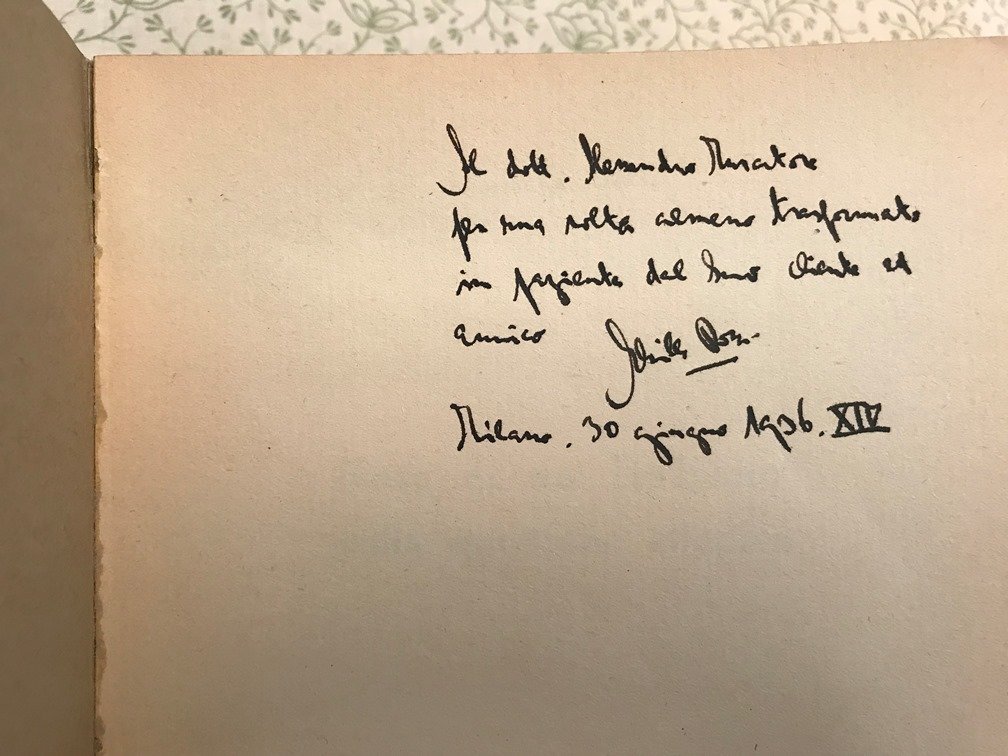 Il dott. Alessandro Muratore
per una volta almeno trasformato
in paziente dal suo cliente ed
amico
Milano. 30 giugno 1936. XIV